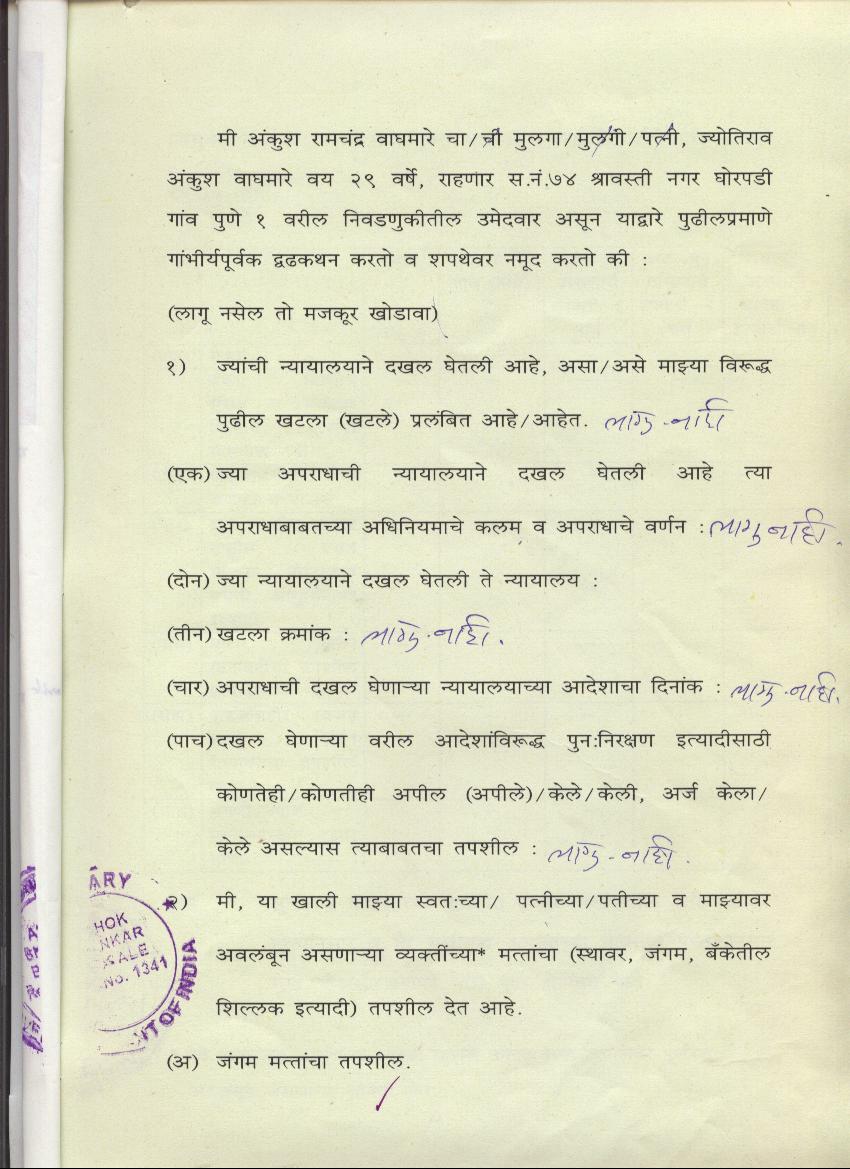 मी अंकुश रामचंद्र वाघमारे चा/ची मुलगा/मुलगी/पत्नी, ज्योतिराव
अंकुश वाघमारे वय २९ वर्षे, राहणार स.नं.७४ श्रावस्ती नगर घोरपडी
गांव पुणे १ वरील निवडणुकीतील उमेदवार असून याद्वारे पुढीलप्रमाणे
गांभीर्यपूर्वक द्वढकथन करतो व शपथेवर नमूद करतो की :
(लागू नसेल तो मजकूर खोडावा)
१) ज्यांची न्यायालयाने दखल घेतली आहे, असा/असे माझ्या विरूद्ध
पुढील खटला (खटले) प्रलंबित आहे/आहेत. लागू नाही
(एक) ज्या अपराधाची न्यायालयाने दखल घेतली आहे त्या
अपराधाबाबतच्या अधिनियमाचे कलम व अपराधाचे वर्णन : लागू नाही.
(दोन) ज्या न्यायालयाने दखल घेतली ते न्यायालय :
(तीन) खटला क्रमांक : लागू नाही.
(चार) अपराधाची दखल घेणाऱ्या न्यायालयाच्या आदेशाचा दिनांक : लागू नाही.
(पाच) दखल घेणाऱ्या वरील आदेशांविरूद्ध पुन:निरक्षण इत्यादीसाठी
कोणतेही/कोणतीही अपील (अपीले)/केले/केली, अर्ज केला/
केले असल्यास त्याबाबतचा तपशील : लागू नाही.
२) मी, या खाली माझ्या स्वत:च्या/ पत्नीच्या/पतीच्या व माझ्यावर
अवलंबून असणाऱ्या व्यक्तींच्या* मत्तांचा (स्थावर, जंगम, बँकेतील
शिल्लक इत्यादी) तपशील देत आहे.
(अ) जंगम मत्तांचा तपशील.
ARY
HOK
NKAR
KALE
No. 1341
NT OF INDIA